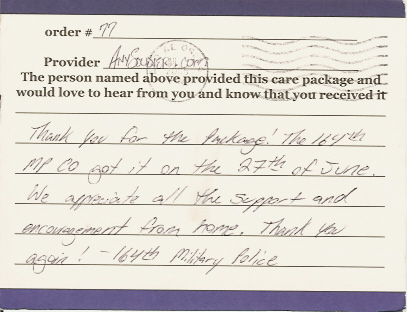 order # 77
Provider AnySoldier.com
The person named above provided this care package and
would love to hear from you and know that you received it
Thank you for the Package! The 164th
MP CO got it on the 27th of June.
We appreciate all the support and
encouragement from home. Thank you
again! - 164th Military Police